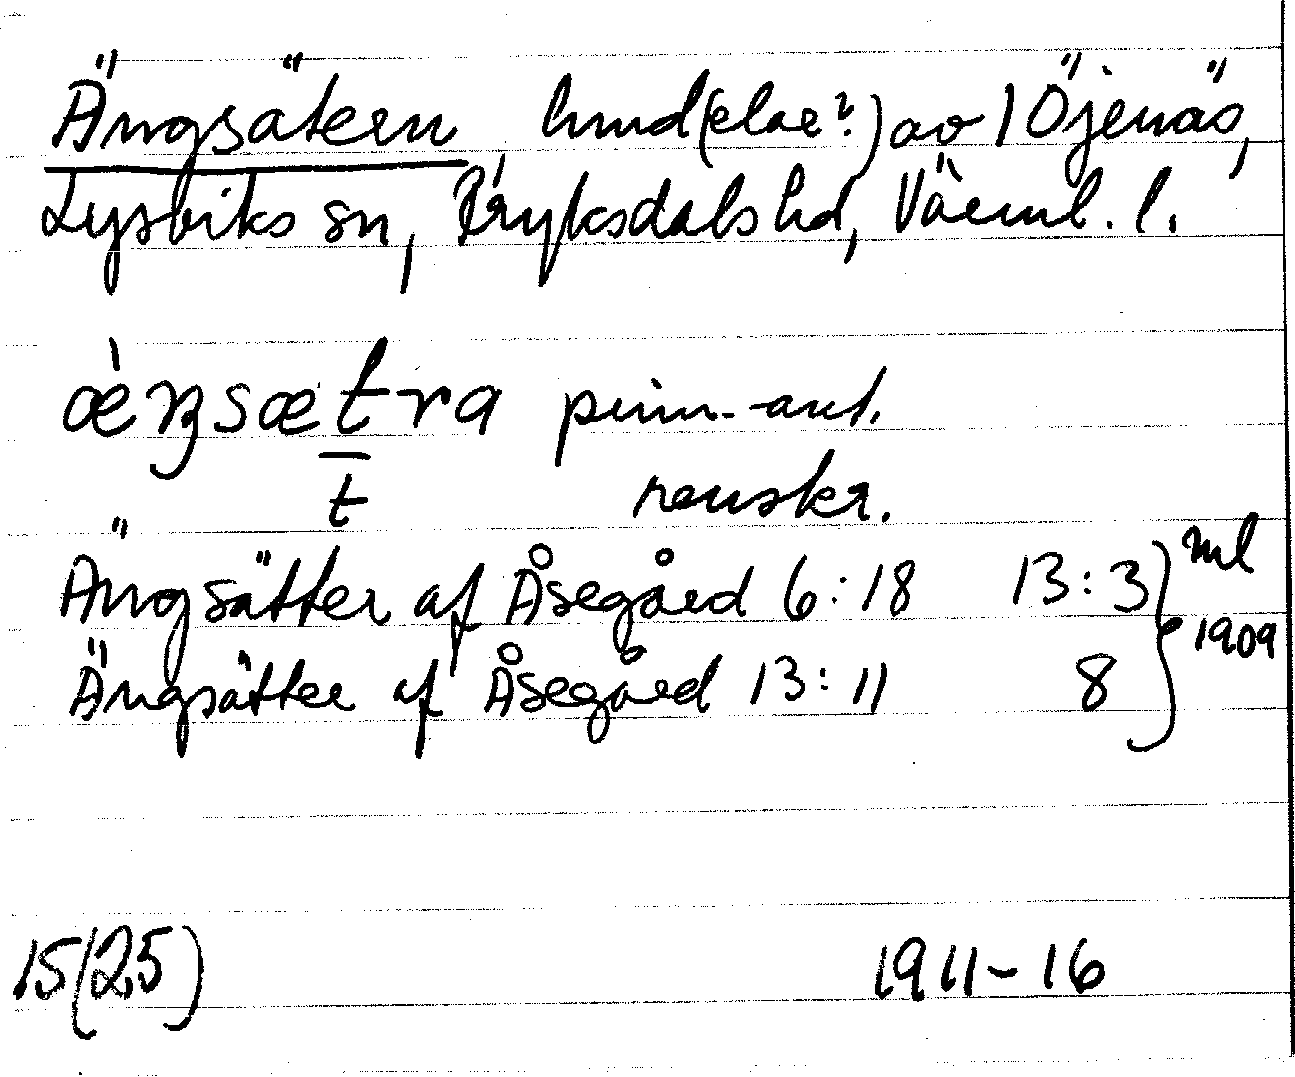 Ängsätern hmd(elar?) av 1 Öjenäs,
Lysviks sn, Fryksdals hd, Värml. l.
æ̀ŋsætra prim.-ant.
t renskr.
Ängsätter af Åsegård 6:18 13:3 } ml
Ängsätter af Åsegård 13:11 8 } 1909
15(25) 1911-16